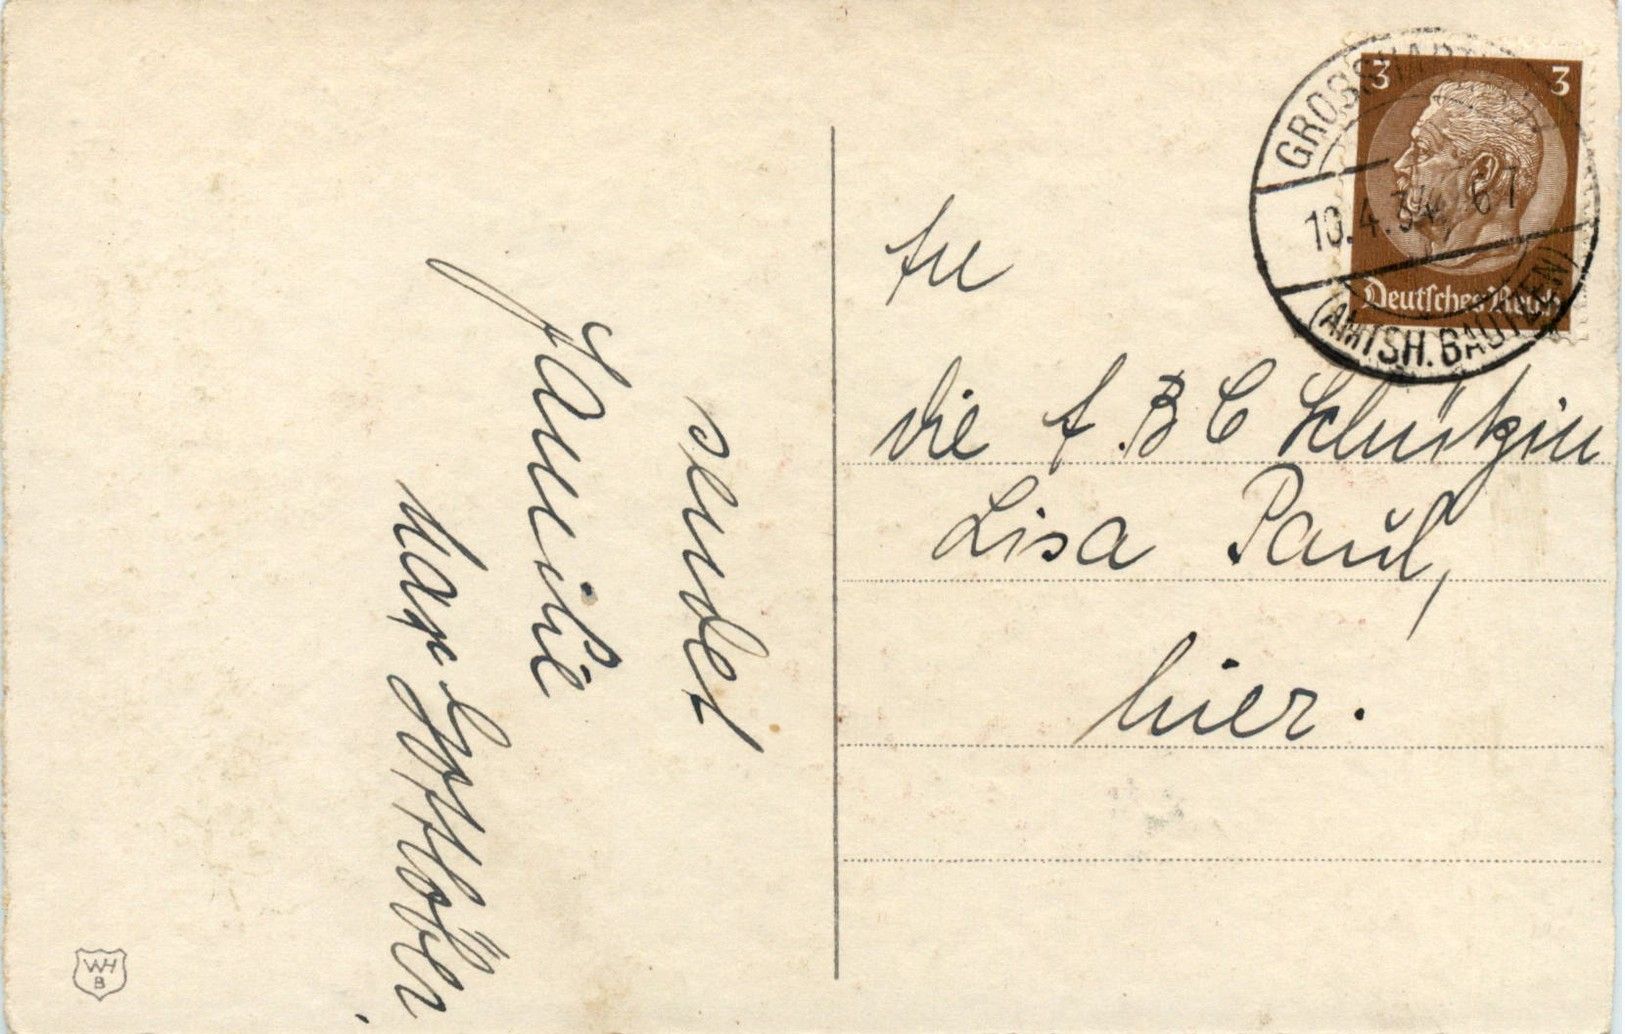 sendet
Familie
Max
An
die A.B C Schützin
Lisa Paul,
hier.
3 3
Deutsches Reich
10.4.34. 6-7
(AMTSH. BAUTZEN)
WH
B